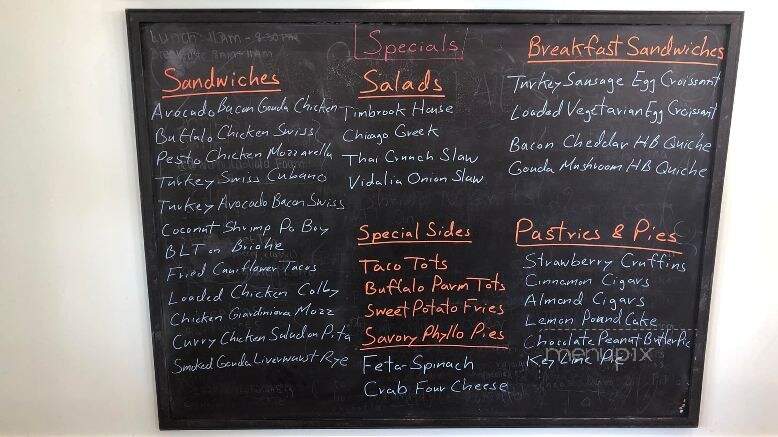 LUNCH 11AM - 8:30 PM
Specials
Sandwiches
Avocado Bacon Gouda Chicken
Buffalo Chicken Swiss
Pesto Chicken Mozzarella
Turkey Swiss Cubano
Turkey Avocado Bacon Swiss
Coconut Shrimp Po Boy
BLT on Briohe
Fried Cauiflower Tacos
Loaded Chicken Colby
Chicken Giardiniara Mozz
Curry Chicken Salad on Pita
Smoked Gouda Liverwurst Rye
Salads
Timbrook House
Chicago Greek
Thai Crunch Slaw
Vidalia Onion Slaw
Special Sides
Taco Tots
Buffalo Parm Tots
Sweet Potato Fries
Savory Phyllo Pies
Feta-Spinach
Crab Four Cheese
Breakfast Sandwiches
Turkey Sausage Egg Croissant
Loaded Vegetarian Egg Croissant
Bacon Cheddar HB Quiche
Gouda Mushroom HB Quiche
Pastries & Pies
Strawberry Cruffins
Cinnamon Cigars
Almond Cigars
Lemon Pound Cake
Chocolate Peanut Butter Pie
Key Lime Pie
menupix